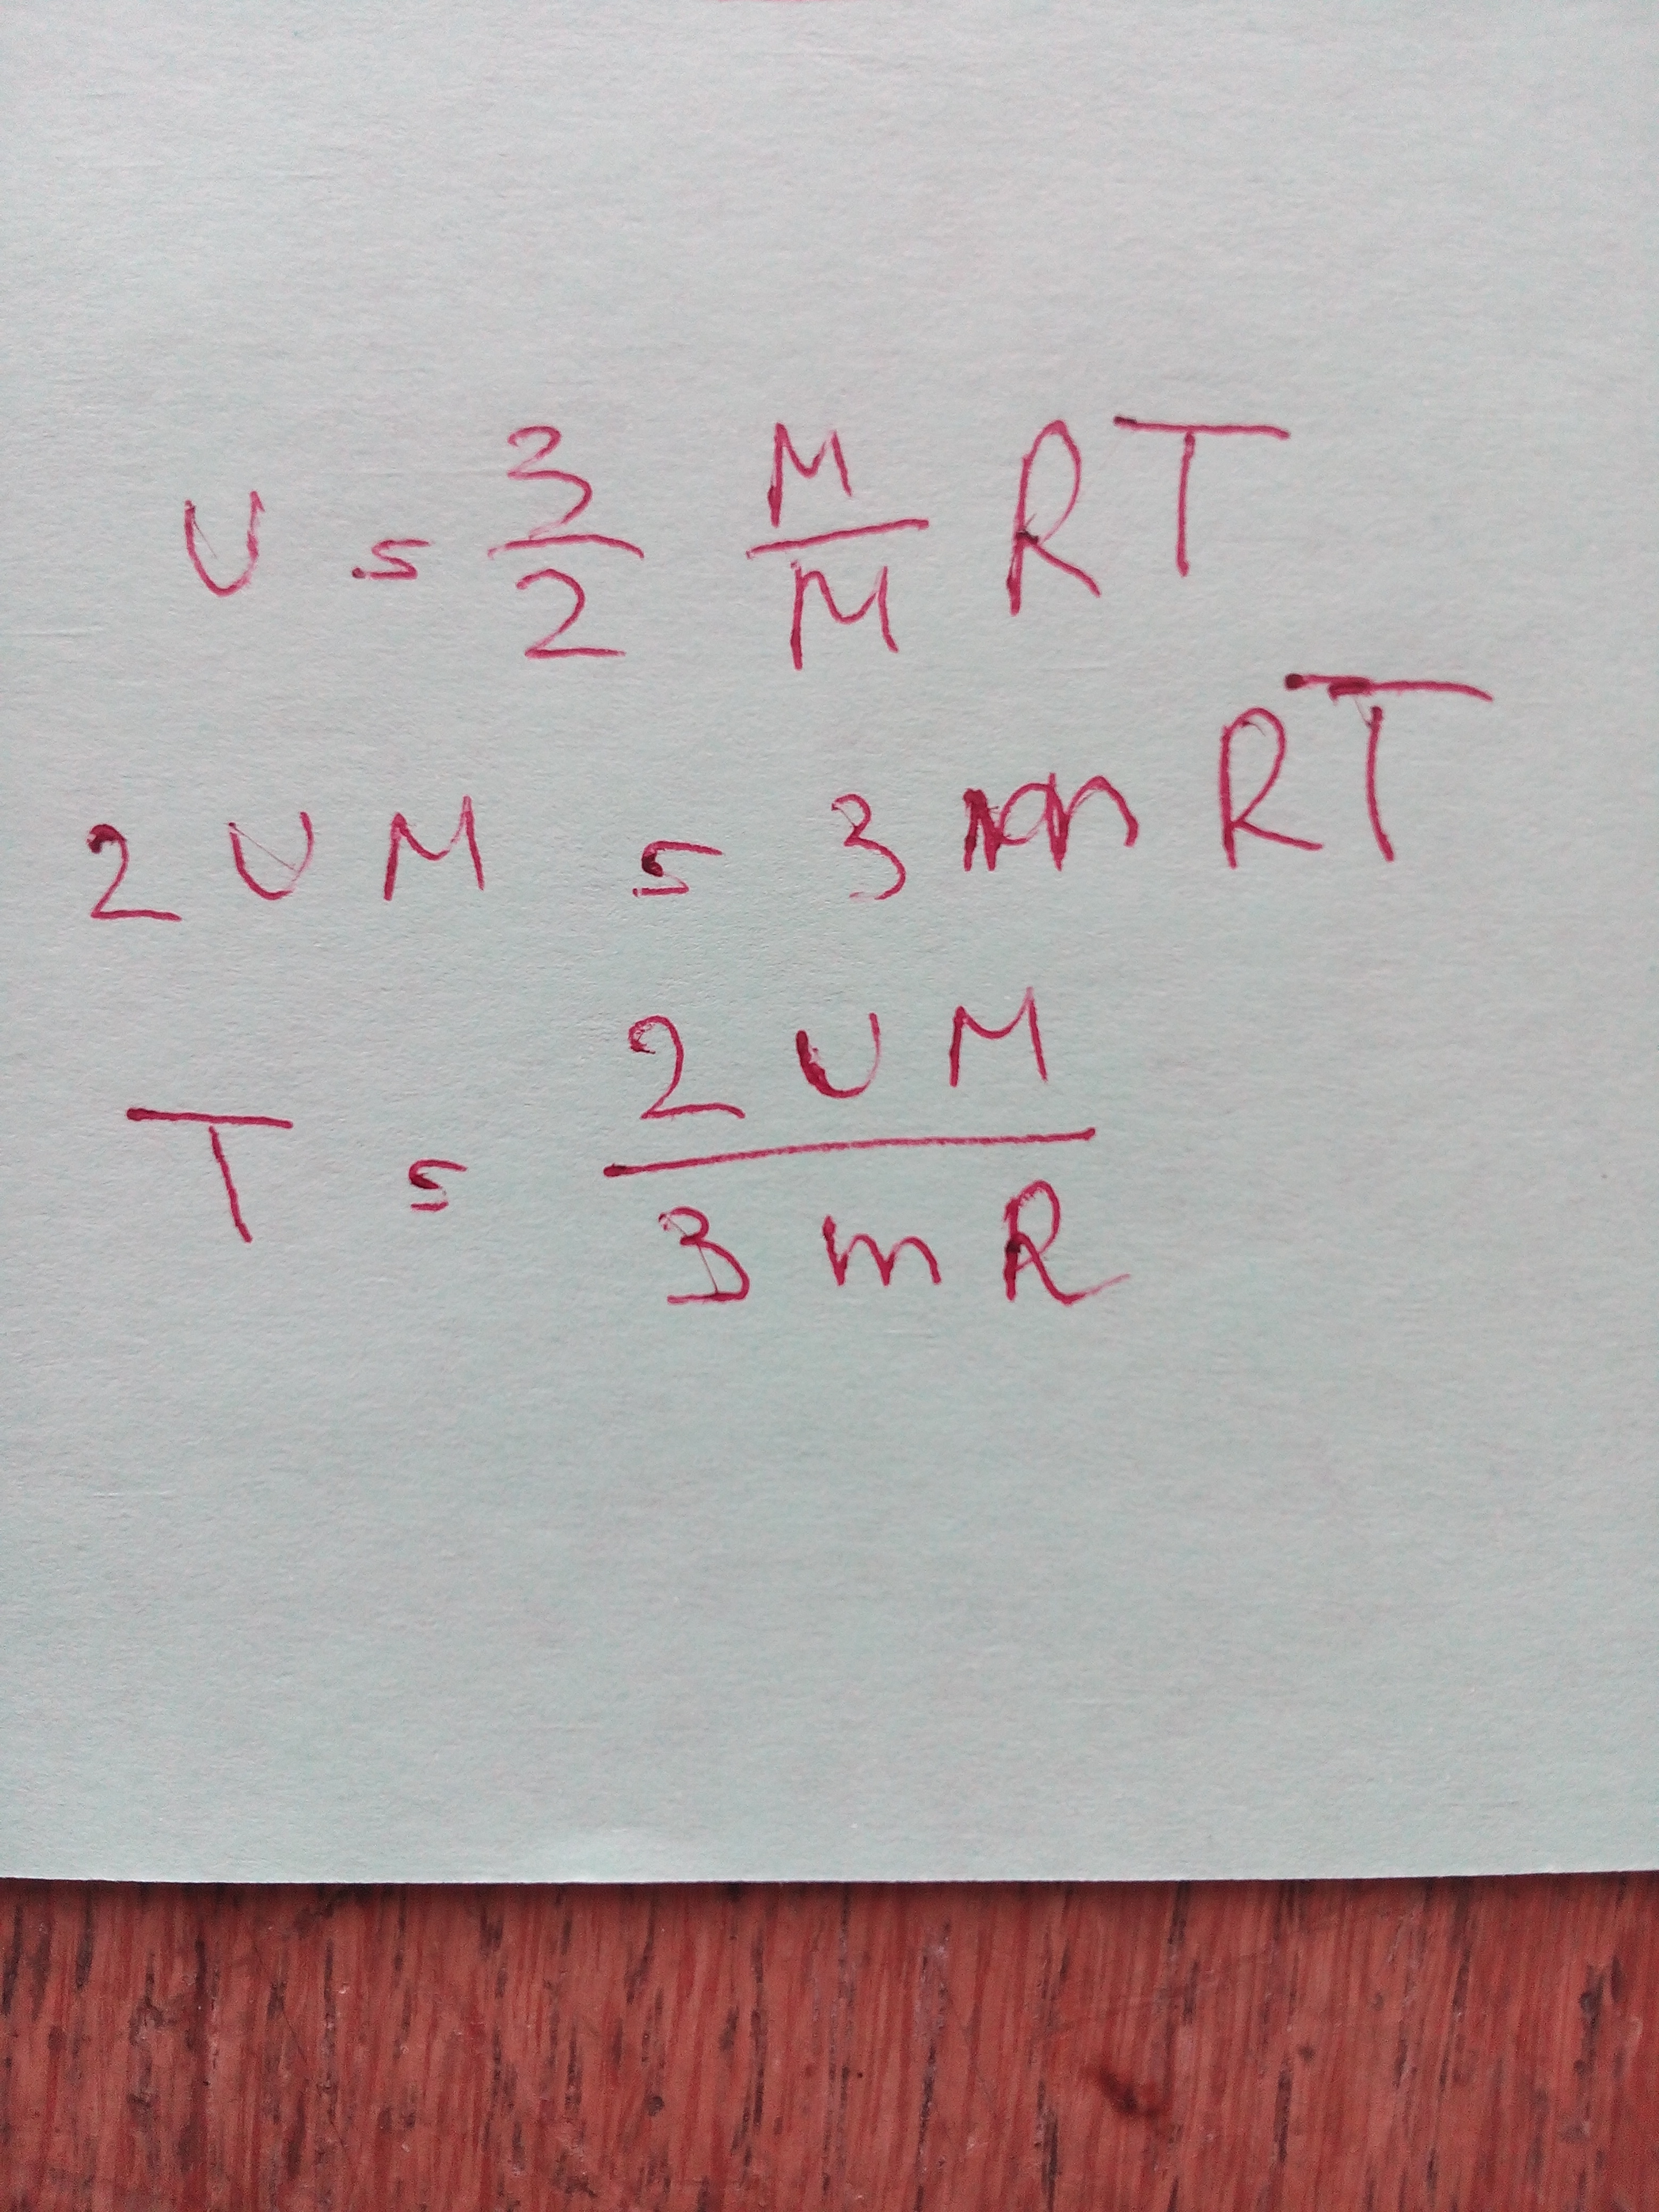 U = 3/2 M/M RT
2 U M = 3 m RT
T = 2 U M / 3 m R